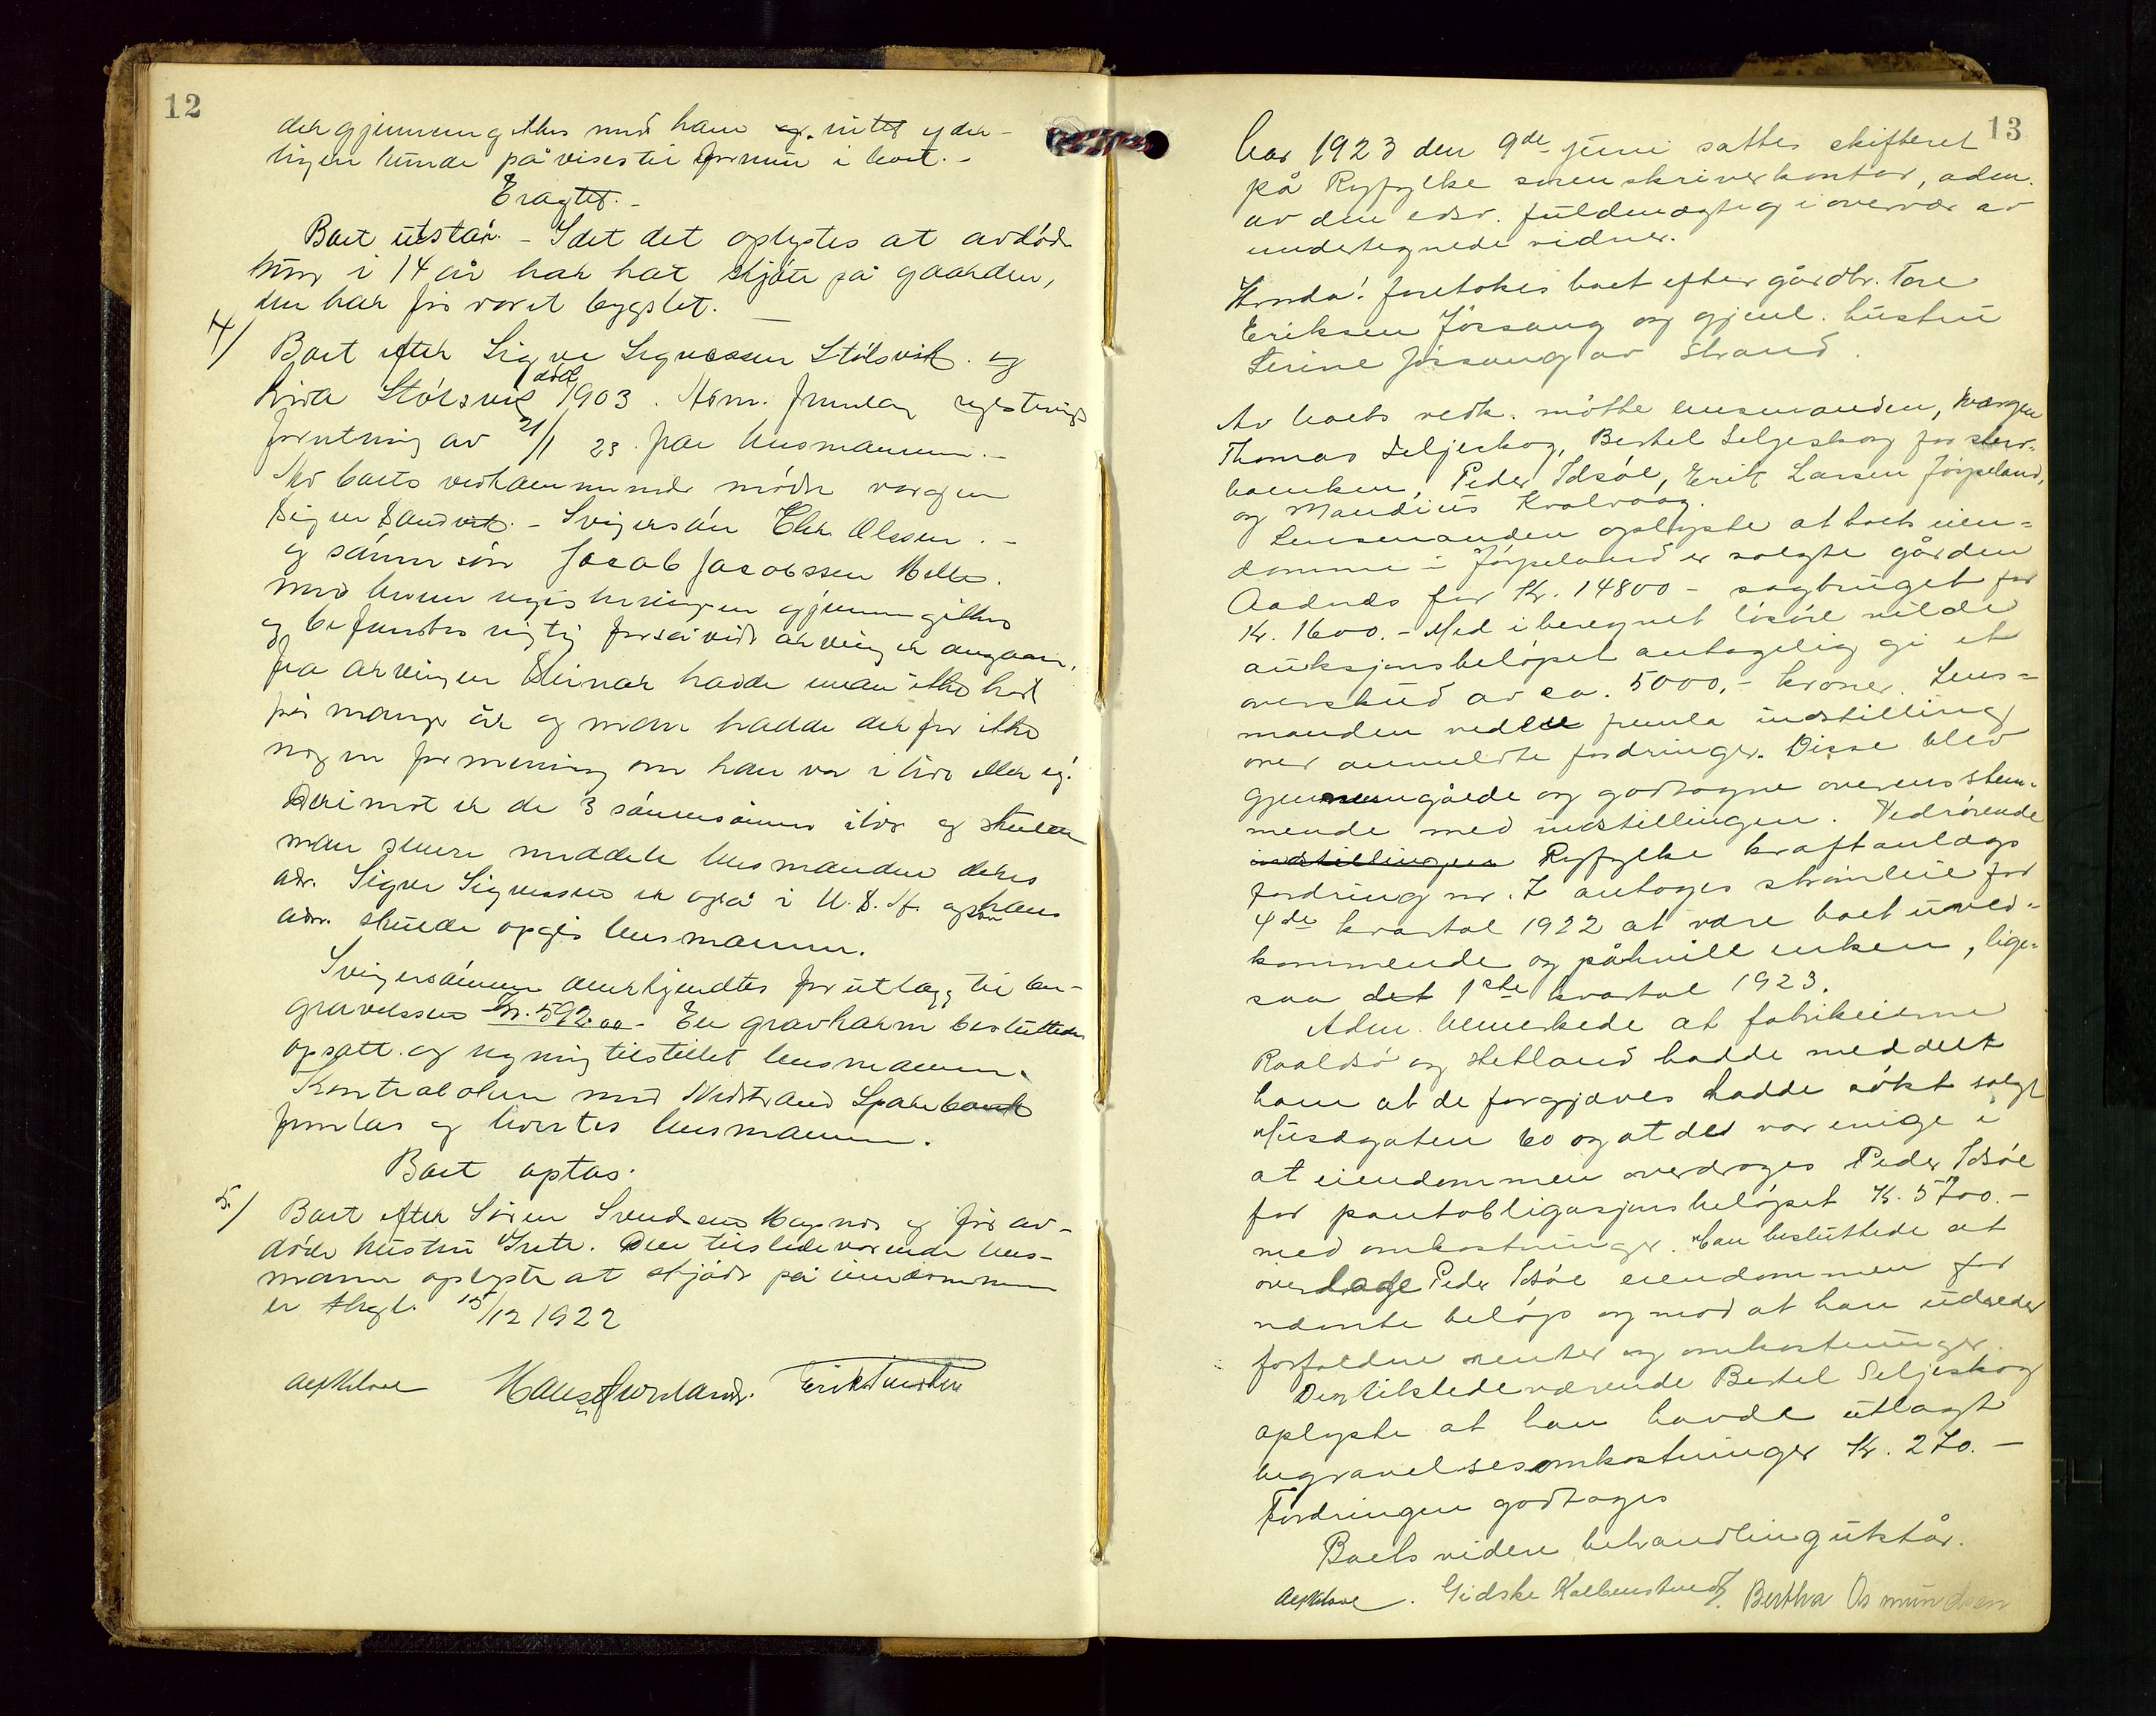 12
der gjennemgikkes med ham og intet yder-
ligere kunde påvises til formue i boet. -
Eragtet. -
Boet utstår. - Idet det oplystes at avdöde
kun i 14 år har hat skjöte på gaarden,
den har för været bygslet.
4/
Boet efter Sigve Sigvessen Stölsvik og
Siva Stölsvik död 1903. Adm. fremla registrerings
forretning av 21/1 23 fra lensmannen. -
Av boets vedkommende mödte vergen
Sigve Sandvik. - Svigersön Chr. Olsen. -
og sönnesön Jacob Jacobssen Helle.
med hvem registreringen gjennemgikkes
og befandtes rigtig forsåvidt arvinger angaar.
fra arvingen Steinar hadde man ikke hört
på mange år og man hadde derfor ikke
nogen formening om han var i live eller ej.
Derimot er de 3 sönnesönner ilive og skulde
man senere meddele lensmanden deres
adr. Sigve Sigvessen er også i U.S.A. også hans
adr. skulde opgis lensmannen.
Svigersönnen anerkjendtes for utlæg til be-
gravelsen Kr. 592.00 - En gravharm besluttedes
opsatt og regning tilstillet lensmannen.
Kontrabolen med Nedstrand Sparebank
fremlas og levertes lensmannen.
Boet optas.
5/
Boet efter Sören Svendsen Hagenes og för av-
döde hustru Grete. Den tilstedeværende lens-
mann oplyste at skjöde på eiendommen
er tinglt. 15/12 1922

13
Aar 1923 den 9de juni sattes skifteret
på Ryfylke sorenskriverkontor, adm.
av den edsv. fuldmægtig i overvær av
undertegnede vidner.
Hvorda: foretokes boet efter gårdbr. Tore
Eriksen Jössang og gjenl. hustru
Serine Jössang av Strand.
Av boets vedk. mötte lensmanden, værgen
Thomas Seljeskog, Bertel Seljeskog for sterv-
boenken, Peder Idsöe, Erik Larsen Jörpeland,
og Mandius Kvalvaag.
Lensmanden oplyste at boets eien-
domme i Jörpeland er solgte gården
Aadnås for Kr. 14800 - sagbruget for
Kr. 1600. - Med iberegnet lösöre vilde
auksjonsbelöpet antagelig gi et
overskud av ca. 5000,- kroner. Lens-
manden vedla fremla indstilling
over anmeldte fordringer. Disse blev
gjennemgåede og godtagne overensstem-
mende med indstillingen. Vedrörende
indstillingen Ryfylke kraftanlægs
fordring nr. 7 antages strömleie for
4de kvartal 1922 at være boet uved-
kommende og påhvile enken, lige-
saa det 1ste kvartal 1923.
Adm. bemerkede at fabrikeierne
Raaldsö og Hetland hadde meddelt
ham at de forgjæves hadde sökt solgt
Musegaten 60 og at de var enige i
at eiendommen overdrages Peder Idsöe
for pantobligasjonsbelöpet Kr. 5700.-
med omkostninger. Man besluttede at
overdrage Peder Idsöe eiendommen for
nævnte belöp og mod at han udreder
forfaldne renter og omkostninger.
Den tilstedeværende Bertel Seljeskog
oplyste at han havde utlagt
begravelsesomkostninger Kr. 270. -
Fordringen godtages
Boets videre behandling utstår.
Gidske Kolbenstvedt. Bertha Osmundsen